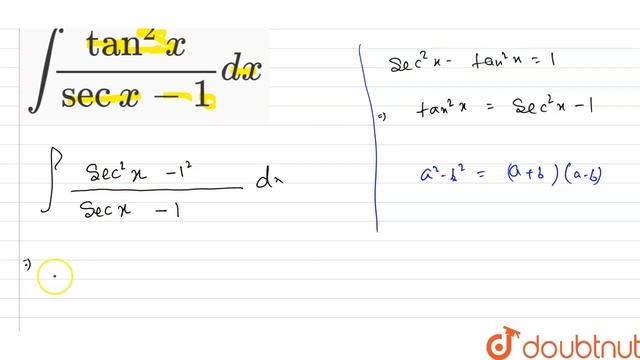 ∫ tan² x / sec x − 1 dx
∫ Sec² x − 1² / Sec x − 1 dx
⇒
Sec² x − tan² x = 1
⇒ tan² x = Sec² x − 1
a² − b² = (a + b) (a − b)
doubtnut